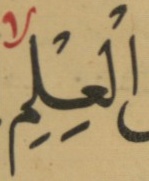 الْعِلْمِ ۙ